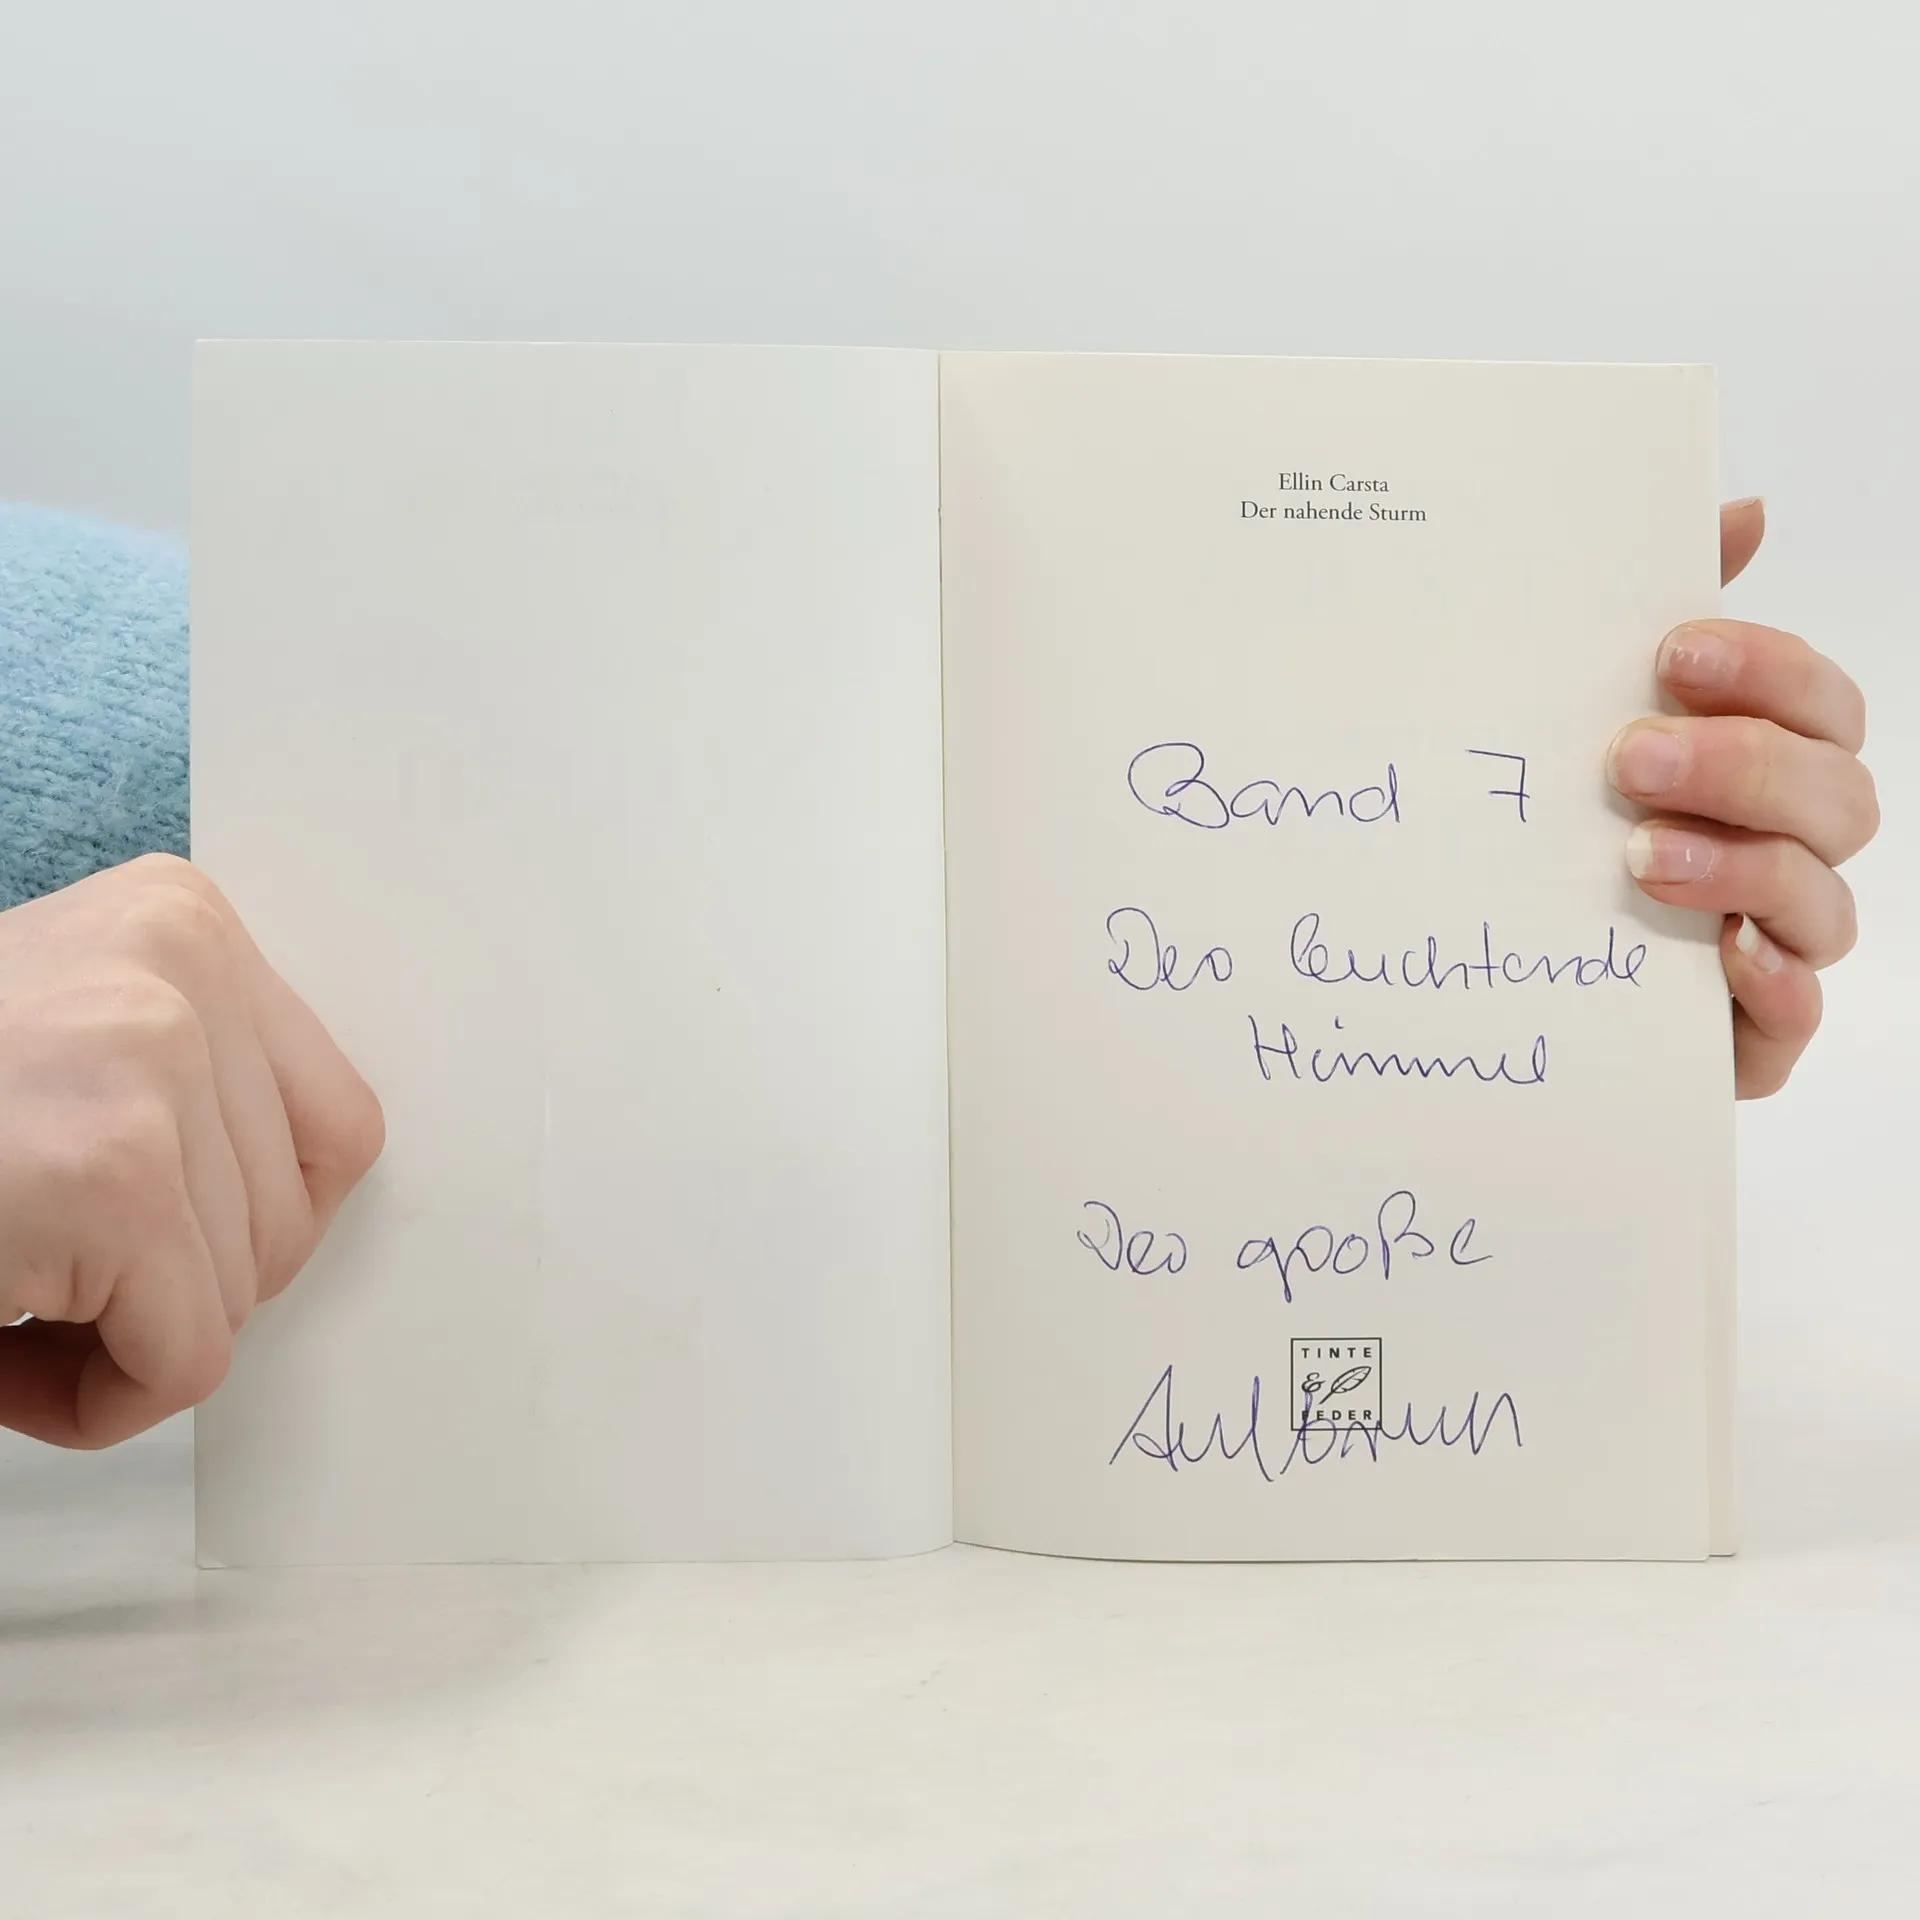 Ellin Carsta
Der nahende Sturm
Band 7
Der leuchtende
Himmel
Der große
TINTE
&
FEDER
Aufbruch